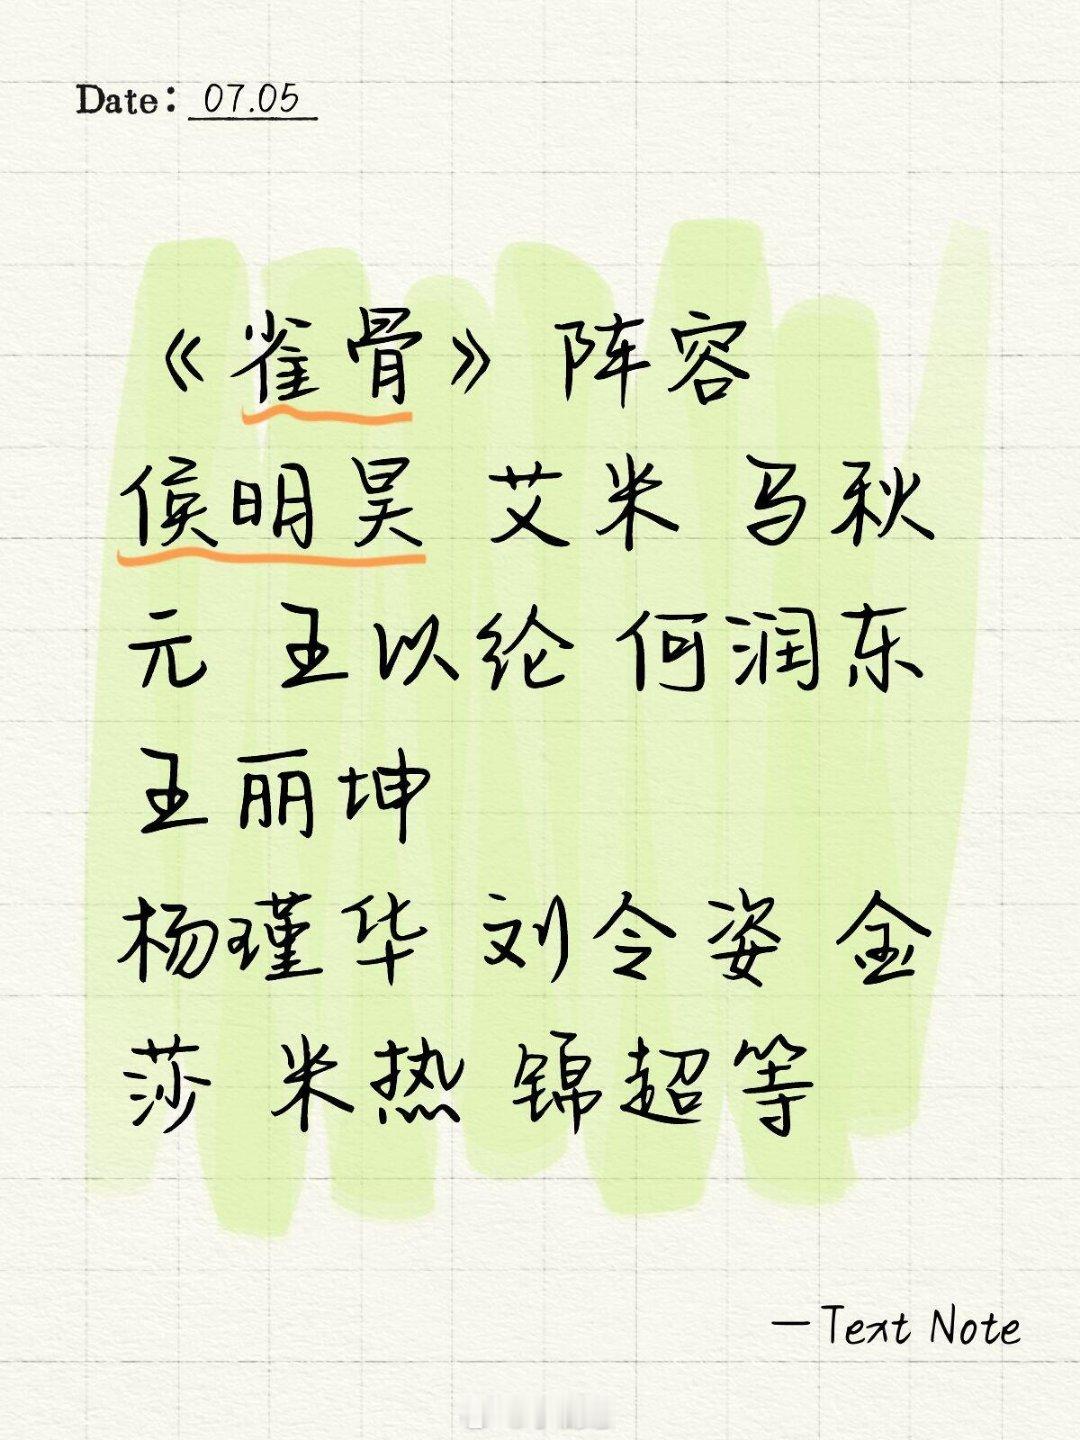 Date: 07.05
《雀骨》阵容
侯明昊 艾米 马秋
元 王以纶 何润东
王丽坤
杨瑾华 刘令姿 金
莎 米热 锦超等
—Text Note